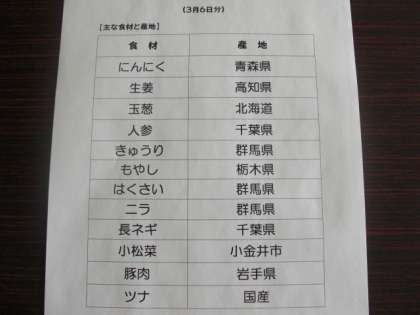 (3月6日分)
[主な食材と産地]
食 材 産 地
にんにく 青森県
生姜 高知県
玉葱 北海道
人参 千葉県
きゅうり 群馬県
もやし 栃木県
はくさい 群馬県
ニラ 群馬県
長ネギ 千葉県
小松菜 小金井市
豚肉 岩手県
ツナ 国産